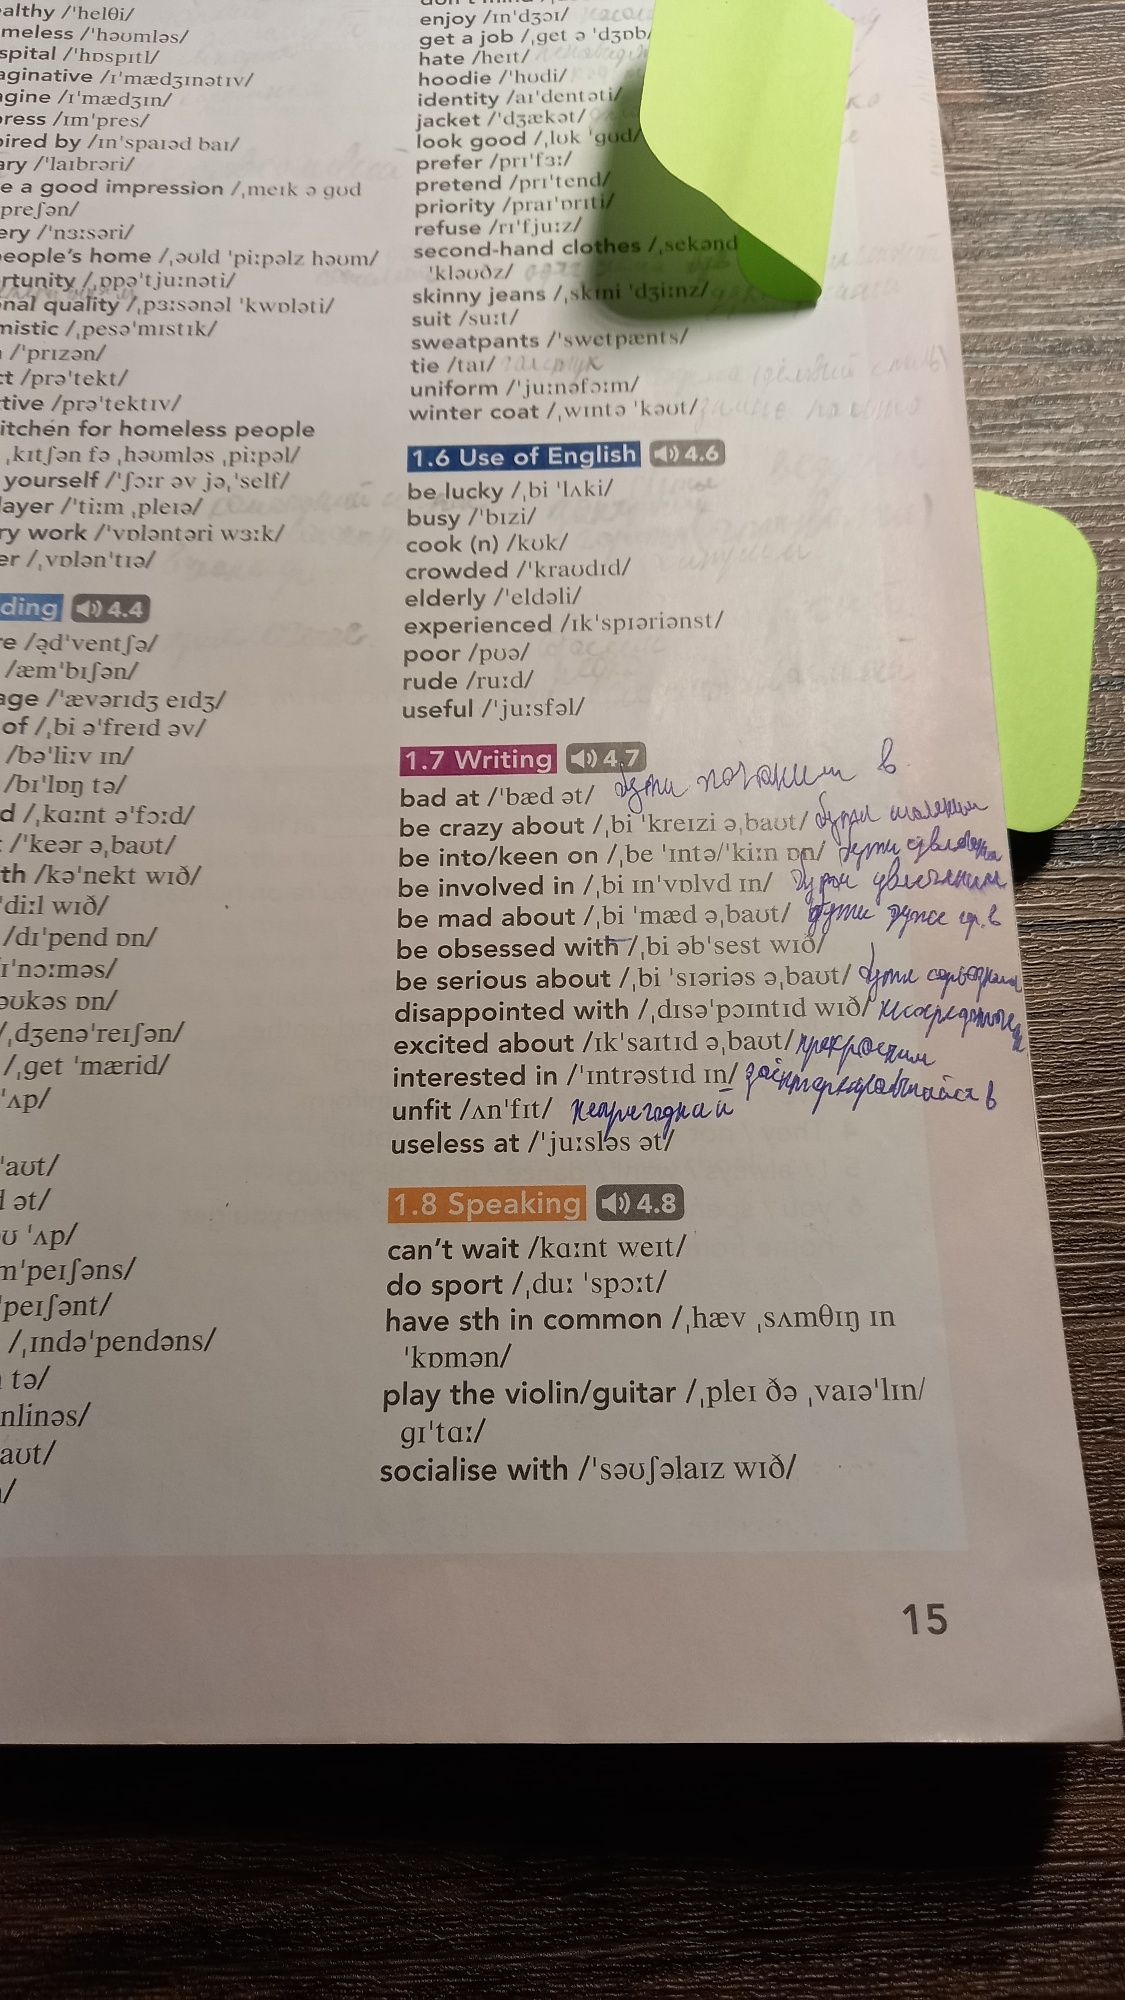 althy /ˈhelθi/
meless /ˈhəʊmləs/
spital /ˈhɒspɪtl/
aginative /ɪˈmædʒɪnətɪv/
agine /ɪˈmædʒɪn/
press /ɪmˈpres/
pired by /ɪnˈspaɪəd baɪ/
ary /ˈlaɪbrəri/
e a good impression /ˌmeɪk ə gʊd
preʃən/
ery /ˈnɜːsəri/
people's home /ˌəʊld ˈpiːpəlz həʊm/
rtunity /ˌɒpəˈtjuːnəti/
nal quality /ˌpɜːsənəl ˈkwɒləti/
mistic /ˌpesəˈmɪstɪk/
/ˈprɪzən/
ct /prəˈtekt/
ctive /prəˈtektɪv/
kitchen for homeless people
ˌkɪtʃən fə ˌhəʊmləs ˌpiːpəl/
yourself /ˈʃɔːr əv jəˌˈself/
layer /ˈtiːm ˌpleɪə/
ry work /ˈvɒləntəri wɜːk/
er /ˌvɒlənˈtɪə/
ding 4.4
re /ədˈventʃə/
/æmˈbɪʃən/
age /ˈævərɪdʒ eɪdʒ/
of /ˌbi əˈfreɪd əv/
/bəˈliːv ɪn/
/bɪˈlɒŋ tə/
d /ˌkɑːnt əˈfɔːd/
/ˈkeər əˌbaʊt/
th /kəˈnekt wɪð/
ˈdiːl wɪð/
/dɪˈpend ɒn/
ɪˈnɔːməs/
əʊkəs ɒn/
/ˌdʒenəˈreɪʃən/
/ˌget ˈmærid/
ˈʌp/
ˈaʊt/
ət/
ʊ ˈʌp/
mˈpeɪʃəns/
ˈpeɪʃənt/
/ˌɪndəˈpendəns/
tə/
nlinəs/
aʊt/
/
enjoy /ɪnˈdʒɔɪ/
get a job /ˌget ə ˈdʒɒb/
hate /heɪt/
hoodie /ˈhʊdi/
identity /aɪˈdentəti/
jacket /ˈdʒækət/
look good /ˌlʊk ˈgʊd/
prefer /prɪˈfɜː/
pretend /prɪˈtend/
priority /praɪˈɒrɪti/
refuse /rɪˈfjuːz/
second-hand clothes /ˌsekənd
ˈkləʊðz/
skinny jeans /ˌskɪni ˈdʒiːnz/
suit /suːt/
sweatpants /ˈswetpænts/
tie /taɪ/ галстук
uniform /ˈjuːnəfɔːm/
winter coat /ˌwɪntə ˈkəʊt/ зимнє пальто
1.6 Use of English 4.6
be lucky /ˌbi ˈlʌki/
busy /ˈbɪzi/
cook (n) /kʊk/
crowded /ˈkraʊdɪd/
elderly /ˈeldəli/
experienced /ɪkˈspɪəriənst/
poor /pʊə/
rude /ruːd/
useful /ˈjuːsfəl/
1.7 Writing 4.7
bad at /ˈbæd ət/ бути поганим в
be crazy about /ˌbi ˈkreɪzi əˌbaʊt/ бути шаленим
be into/keen on /ˌbe ˈɪntə/ˈkiːn ɒn/ бути
be involved in /ˌbi ɪnˈvɒlvd ɪn/ бути увлеченим
be mad about /ˌbi ˈmæd əˌbaʊt/ бути дуже в
be obsessed with /ˌbi əbˈsest wɪð/
be serious about /ˌbi ˈsɪəriəs əˌbaʊt/ бути
disappointed with /ˌdɪsəˈpɔɪntɪd wɪð/
excited about /ɪkˈsaɪtɪd əˌbaʊt/
interested in /ˈɪntrəstɪd ɪn/ в
unfit /ʌnˈfɪt/ непригодний
useless at /ˈjuːsləs ət/
1.8 Speaking 4.8
can't wait /kɑːnt weɪt/
do sport /ˌduː ˈspɔːt/
have sth in common /ˌhæv ˌsʌmθɪŋ ɪn
ˈkɒmən/
play the violin/guitar /ˌpleɪ ðə ˌvaɪəˈlɪn/
gɪˈtɑː/
socialise with /ˈsəʊʃəlaɪz wɪð/
15